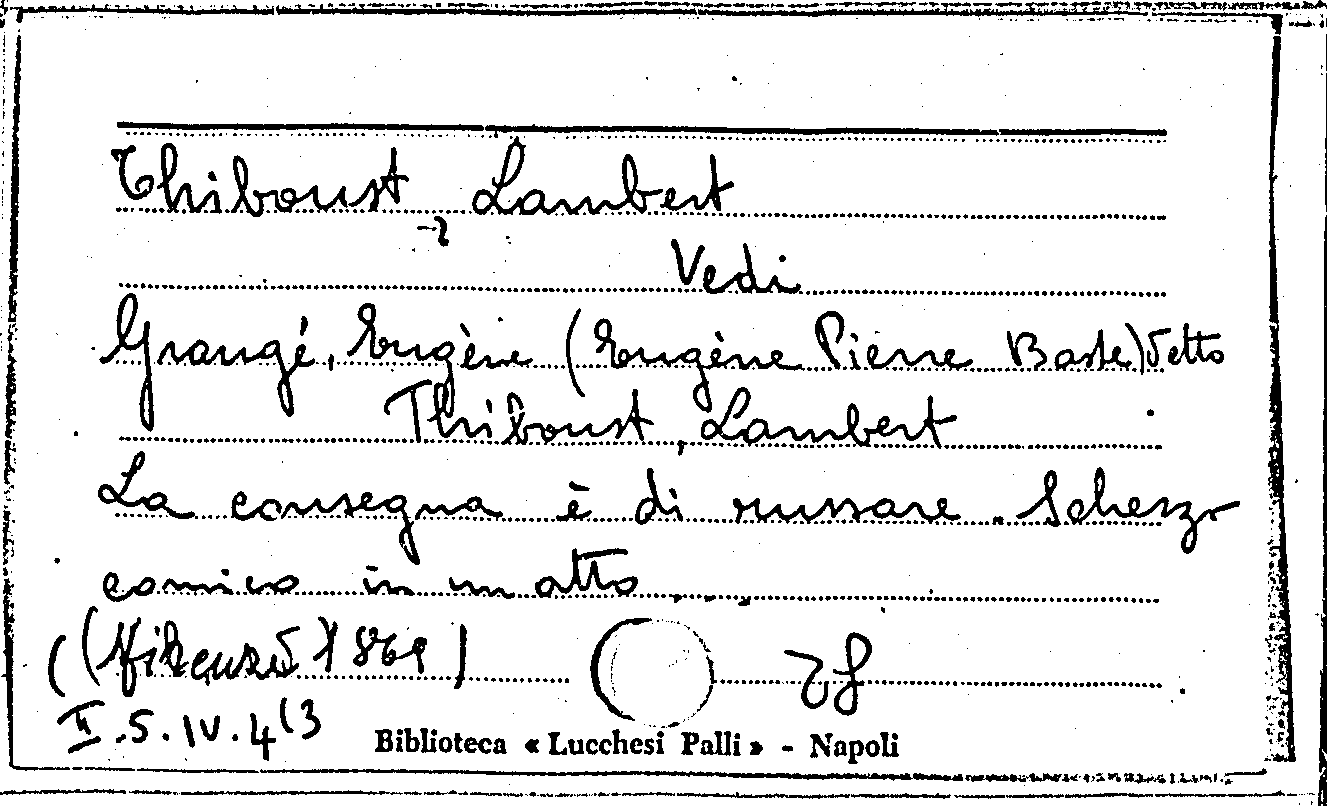 Thiboust, Lambert
Vedi
Grangé, Eugène (Eugène Pierre Baste) detto
Thiboust, Lambert
La consegna è di russare. Scherzo
comico in un atto....
((Firenze 1869)
II.S.IV.4(3
Biblioteca « Lucchesi Palli » - Napoli